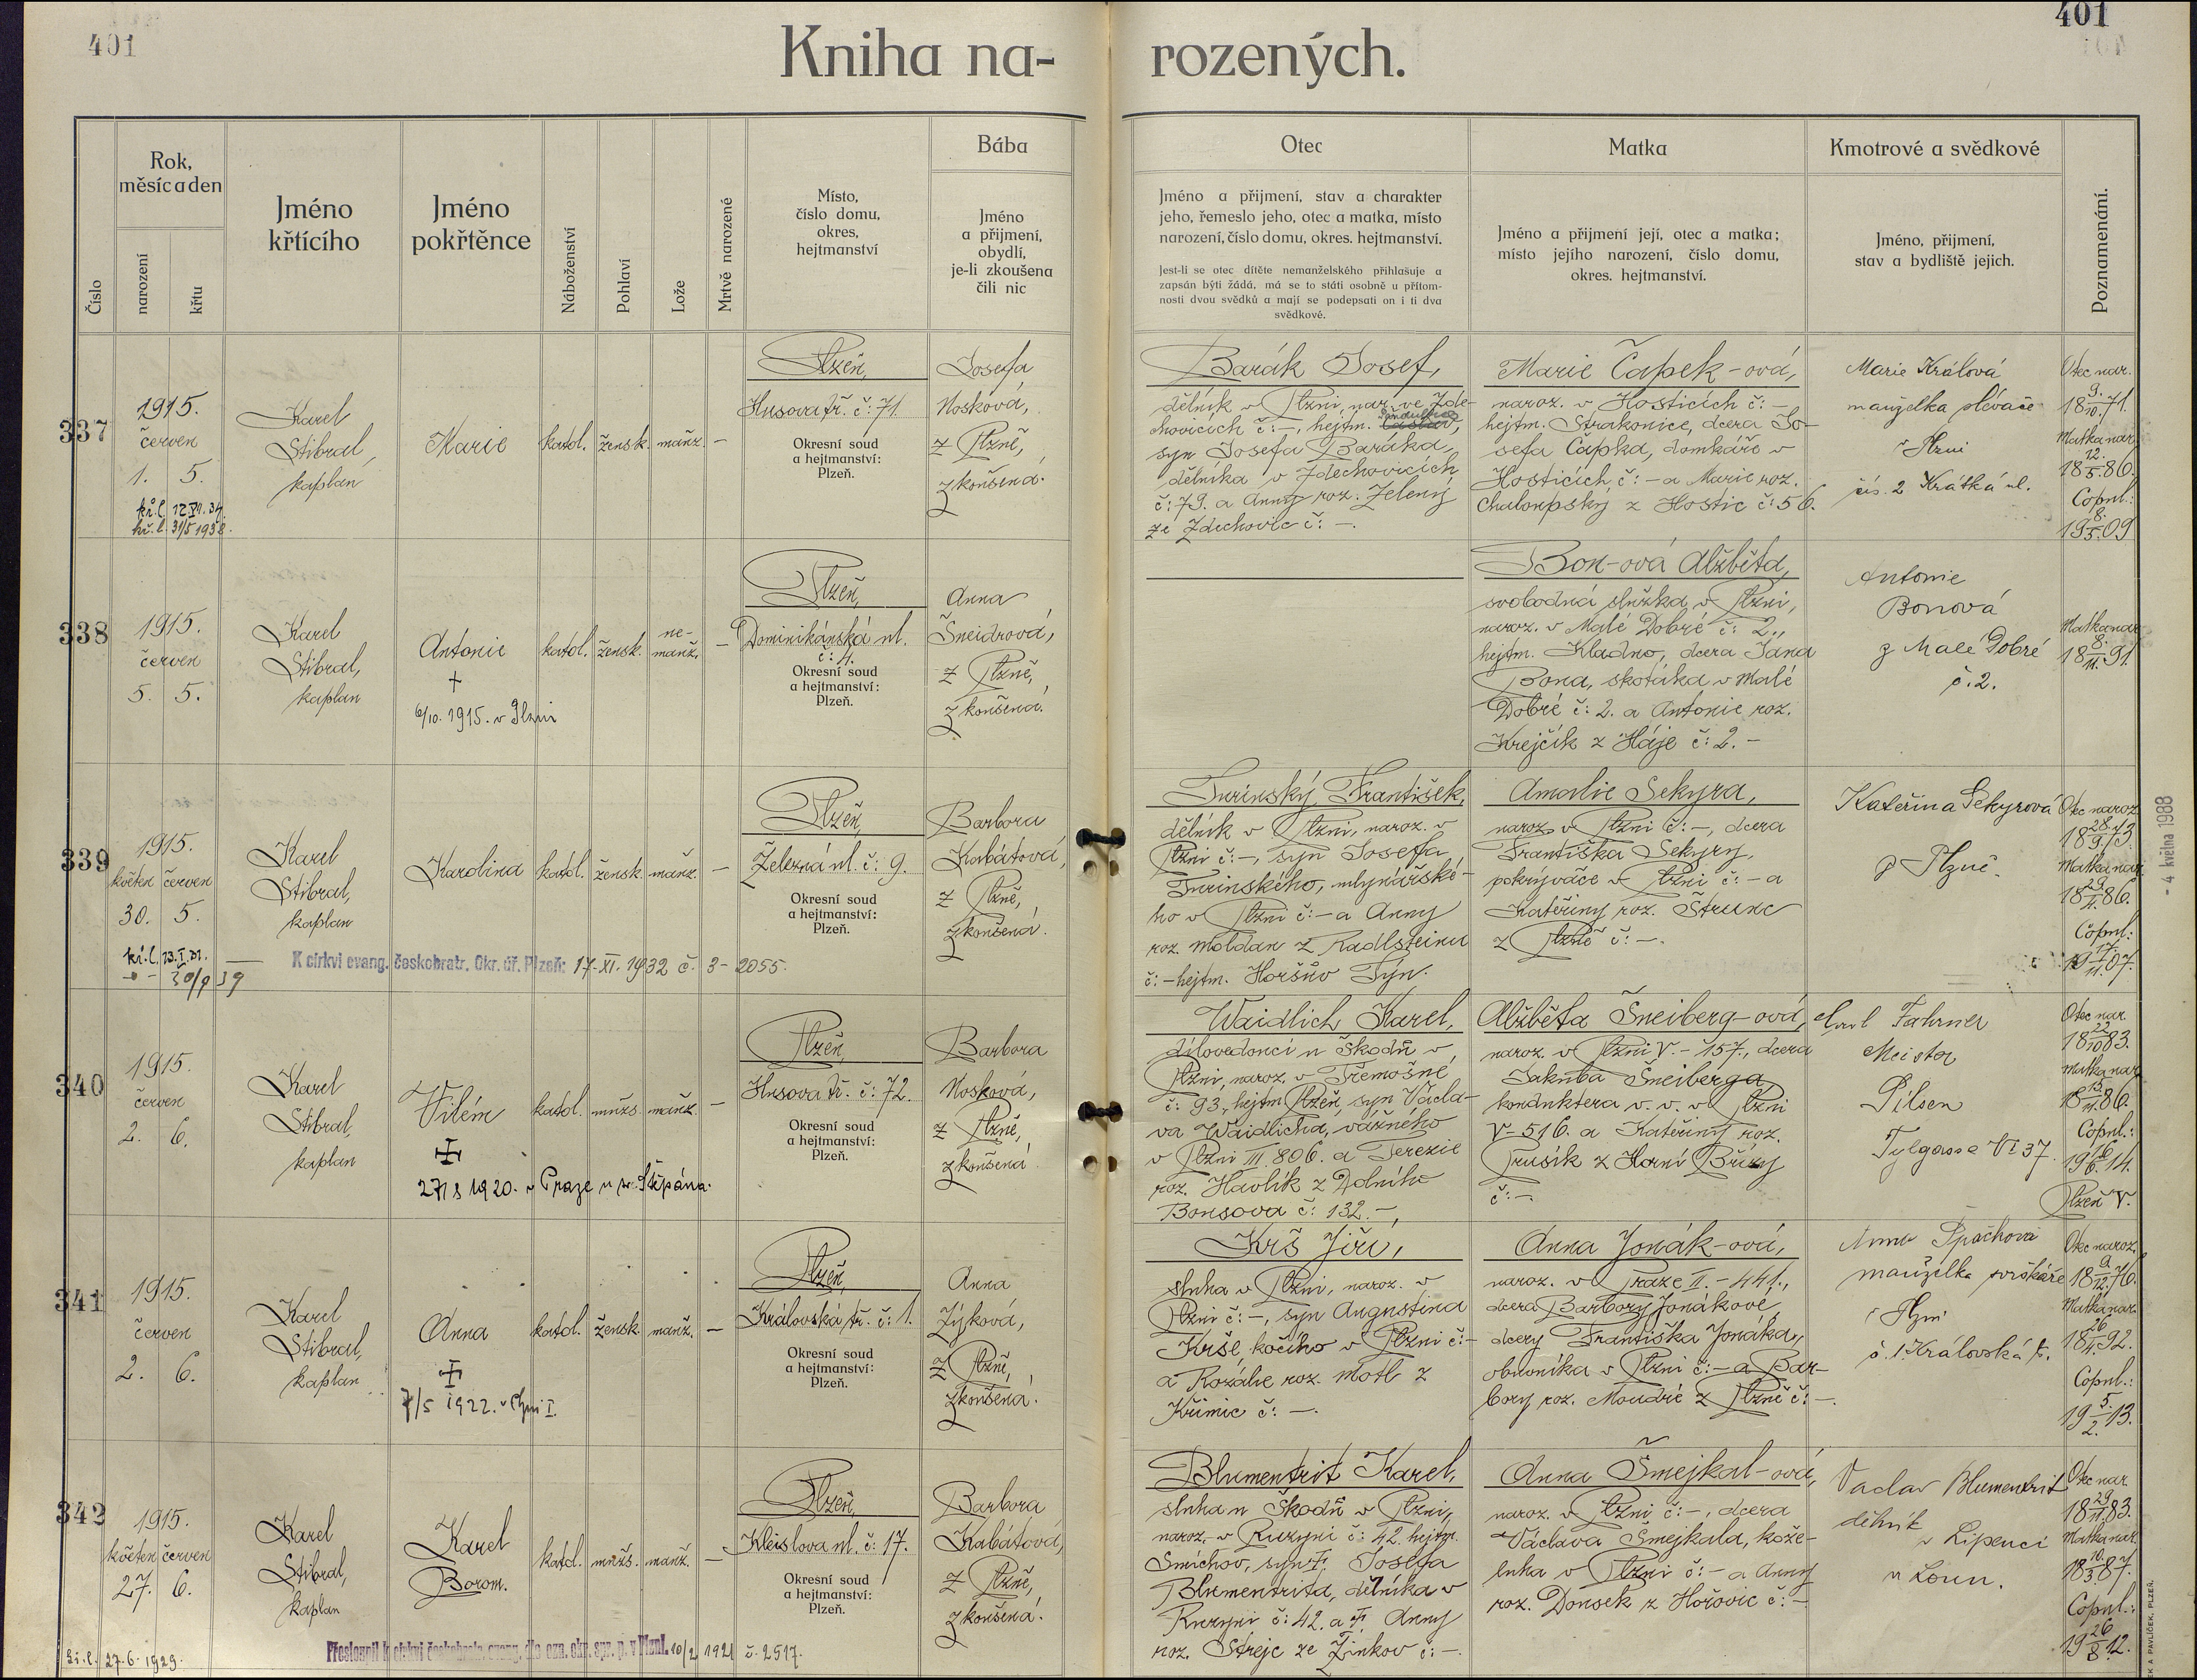 401
401
Kniha na-
rozených.
Číslo
Rok,
měsíc a den
narození
křtu
Jméno
křtícího
Jméno
pokřtěnce
Náboženství
Pohlaví
Lože
Mrtvě narozené
Místo,
číslo domu,
okres,
hejtmanství
Bába
Jméno
a přijmení,
obydlí,
je-li zkoušena
čili nic
Otec
Jméno a přijmení, stav a charakter
jeho, řemeslo jeho, otec a matka, místo
narození, číslo domu, okres. hejtmanství.
Jest-li se otec dítěte nemanželského přihlašuje a
zapsán býti žádá, má se to státi osobně u přítom-
nosti dvou svědků a mají se podepsati on i ti dva
svědkové.
Matka
Jméno a přijmení její, otec a matka;
místo jejího narození, číslo domu,
okres. hejtmanství.
Kmotrové a svědkové
Jméno, přijmení,
stav a bydliště jejich.
Poznamenání.
337
1915.
červen
1. 5.
kř. l. 31/5 1938.
Karel
Stibral,
kaplan
Marie
katol.
žensk.
manž.
—
Plzeň,
Husova tř. č: 71.
Okresní soud
a hejtmanství:
Plzeň.
Josefa
Nosková,
z Plzně,
zkoušená.
Barák Josef,
dělník v Plzni, nar. ve Zde-
chovicích č: —, hejtm. Čáslav,
syn Josefa Baráka,
dělníka v Zdechovicích
č: 79. a Anny roz. Zelený
ze Zdechovic č: —.
Marie Čapek-ová,
naroz. v Hosticích č: —
hejtm. Strakonice, dcera Jo-
sefa Čapka, domkáře v
Hosticích č: — a Marie roz.
Chaloupský z Hostic č: 56.
Marie Králová
manželka plévače
v Plzni
čís. 2 Krátká ul.
Otec nar.
18 9./10. 71.
Matka nar.
18 12./5. 86.
Copul.:
19 8./5. 09
338
1915.
červen
5. 5.
Karel
Stibral,
kaplan
Antonie
+
6/10. 1915. v Plzni
katol.
žensk.
ne-
manž.
—
Plzeň,
Dominikánská ul.
č: 4.
Okresní soud
a hejtmanství:
Plzeň.
Anna
Šneidrová,
z Plzně,
zkoušená.
Bon-ová Alžběta,
svobodná služka v Plzni,
naroz. v Malé Dobré č: 2.,
hejtm. Kladno, dcera Jana
Bona, skotáka v Malé
Dobré č: 2. a Antonie roz.
Krejčík z Háje č: 2. —
Antonie
Bonová
z Malé Dobré
č. 2.
Matka nar.
18 8./11. 91.
339
1915.
květen červen
30. 5.
Karel
Stibral,
kaplan
Karolina
katol.
žensk.
manž.
—
Plzeň,
Železná ul. č: 9.
Okresní soud
a hejtmanství:
Plzeň.
Barbora
Kabátová,
z Plzně,
zkoušená.
K církvi evang. českobratr. Okr. úř. Plzeň: 17. XI. 1932 č. 3 - 2055.
Turinský František,
dělník v Plzni, naroz. v
Plzni č: —, syn Josefa
Turinského, mlynářské-
ho v Plzni č: — a Anny
roz. Moldan z Radlsteinu
č: — hejtm. Horšův Týn.
Amalie Sekyra,
naroz. v Plzni č: —, dcera
Františka Sekyry,
pokrývače v Plzni č: — a
Kateřiny roz. Strunc
z Plzně č: —.
Kateřina Sekyrová
z Plzně.
Otec naroz.
18 28./9. 73.
Matka nar.
86.
Copul.:
19 17./11. 07.
- 4 května 1988
340
1915.
červen
2. 6.
Karel
Stibral,
kaplan
Vilém
27/8 1920. v Praze u sv. Štěpána.
katol.
mužs.
manž.
—
Plzeň,
Husova tř. č: 72.
Okresní soud
a hejtmanství:
Plzeň.
Barbora
Nosková,
z Plzně,
zkoušená.
Waidlich Karel,
dílovedoucí u Škodů v
Plzni, naroz. v Třemošné,
č: 93, hejtm. Plzeň, syn Václa-
va Waidlicha, vážného
v Plzni III. 806. a Terezie
roz. Havlík z Dolního
Bousova č: 132. —,
Alžběta Šneiberg-ová,
naroz. v Plzni V. - 157., dcera
Jakuba Šneiberga,
konduktera v. v. v Plzni
V - 516. a Kateřiny roz.
Prusík z Horní Břízy
č: —
Karl Fahrner
Meister
Pilsen
Tylgasse VI 37.
Otec nar.
18 22./10. 83.
Matka nar.
18 15./11. 86.
Copul.:
19 16./6. 14.
Plzeň V.
341
1915.
červen
2. 6.
Karel
Stibral,
kaplan
Anna
7/5 1922. v Plzni I.
katol.
žensk.
manž.
—
Plzeň,
Královská tř. č: 1.
Okresní soud
a hejtmanství:
Plzeň.
Anna
Zýková,
z Plzně,
zkoušená.
Krš Jiří,
sluha v Plzni, naroz. v
Plzni č: —, syn Augustina
Krše kočího v Plzni č: —
a Rozálie roz. Motl z
Křimic č: —.
Anna Jonák-ová,
naroz. v Praze II. - 441.,
dcera Barbory Jonákové,
dcery Františka Jonáka,
obuvníka v Plzni č: — a Bar-
bory roz. Moudré z Plzně č: —.
Anna Špachová
manželka
v Plzni
č. 1. Královská tř.
Otec naroz.
18 9./12. 76.
Matka nar.
18 26./4. 92.
Copul.:
19 5./2. 13.
342
1915.
květen červen
27. 6.
27. 6. 1929.
Karel
Stibral,
kaplan
Karel
Borom.
katol.
mužs.
manž.
—
Plzeň,
Kleislova ul. č: 17.
Okresní soud
a hejtmanství:
Plzeň.
Barbora
Kabátová,
z Plzně,
zkoušená.
Přestoupil k církvi českobratr. evang. dle ozn. okr. spr. p. v Plzni. 10/2 1921 č. 2517.
Blumentrit Karel,
sluha u Škodů v Plzni,
naroz. v Ruzyni č: 42. hejtm.
Smíchov, syn Josefa
Blumentrita, dělníka v
Ruzyni č: 42. a Anny
roz. Strejc ze Žinkov č: —.
Anna Šmejkal-ová,
naroz. v Plzni č: —, dcera
Václava Šmejkala, kože-
luha v Plzni č: — a Anny
roz. Dousek z Hořovic č: —
Vaclav Blumentrit
dělník
v Lipenci
u Loun.
Otec nar.
18 29./11. 83.
Matka nar.
18 10./3. 87.
Copul.:
19 26./8. 12.
K A PAVLÍČEK, PLZEŇ.